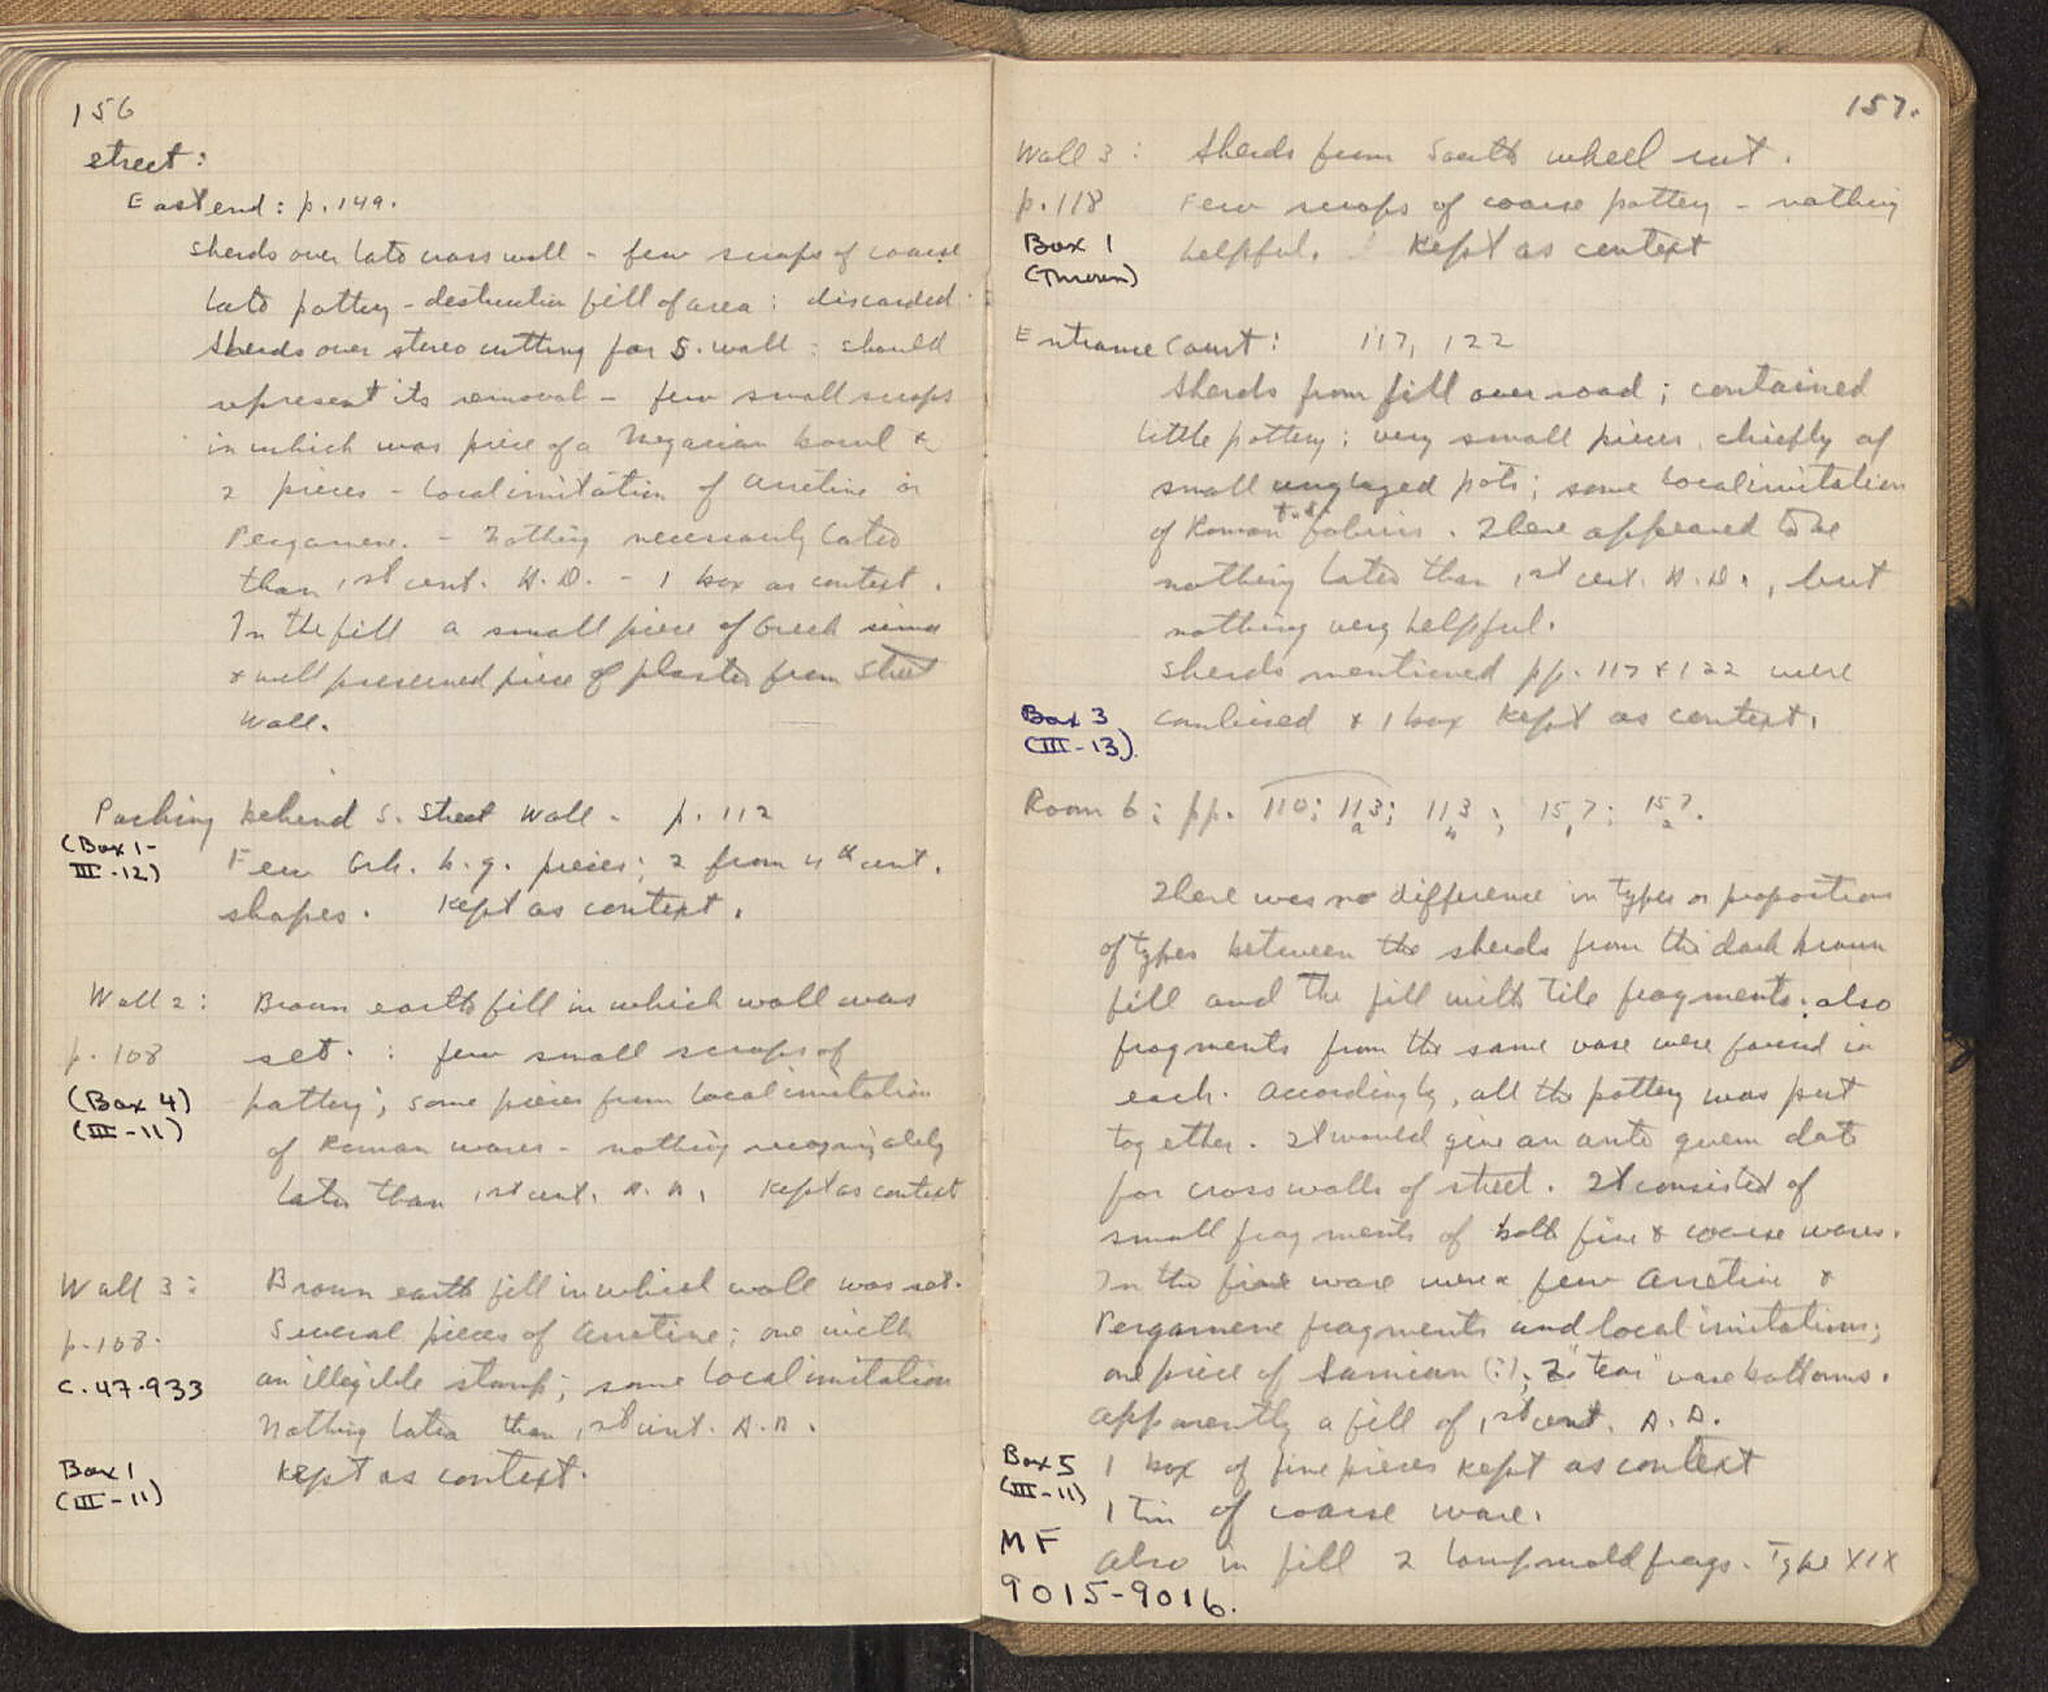 156
Street:
East end: p. 149.
Sherds over late cross wall - few scraps of coarse
late pottery - destruction fill of area: discarded.
Sherds over stereo cutting for S. wall: should
represent its removal - few small scraps
in which was piece of a Megarian bowl &
2 pieces - local imitation of Arretine or
Pergamene. - Nothing necessarily later
than 1st cent. A.D. - 1 box as context.
In the fill a small piece of Greek sima
& well preserved piece of plaster from Street
Wall.
Packing behind S. Street Wall - p. 112
(Box 1-
III-12)
Few Grk. b.g. pieces; 2 from 4th cent.
shapes. Kept as context.
Wall 2: Brown earth fill in which wall was
p. 108 set. : few small scraps of
(Box 4) pottery; some pieces from local imitation
(III-11)
of Roman wares - nothing recognizably
later than 1st cent. A.D. Kept as context
Wall 3: Brown earth fill in which wall was set.
p. 108. Several pieces of Arretine; one with
C.47.933 an illegible stamp; some local imitation
Nothing later than 1st cent. A.D.
Box 1 Kept as context.
(III-11)
157.
Wall 3: Sherds from South wheel rut.
p. 118 Few scraps of coarse pottery - nothing
Box 1 helpful. Kept as context
(Thrown)
Entrance Court: 117, 122
Sherds from fill over road; contained
little pottery; very small pieces, chiefly of
small unglazed pots; some local imitation
of Roman fabrics. There appeared to be
nothing later than 1st cent. A.D., but
nothing very helpful.
Sherds mentioned pp. 117 & 122 were
Box 3 combined & 1 box kept as context.
(III-13).
Room 6: pp. 110; 113a; 113b; 157,1; 157,2.
There was no difference in types or proportion
of types between the sherds from the dark brown
fill and the fill with tile fragments; also
fragments from the same vase were found in
each. Accordingly, all the pottery was put
together. It would give an ante quem date
for cross walls of street. It consisted of
small fragments of both fine & coarse wares.
In the fine ware were a few Arretine &
Pergamene fragments and local imitations;
one piece of Samian (?); 2 "tear" vase bottoms.
Apparently a fill of 1st cent. A.D.
Box 5 1 box of fine pieces kept as context
(III-11)
1 Tin of coarse ware.
MF Also in fill 2 lamp mold frags. Type XIX
9015-9016.